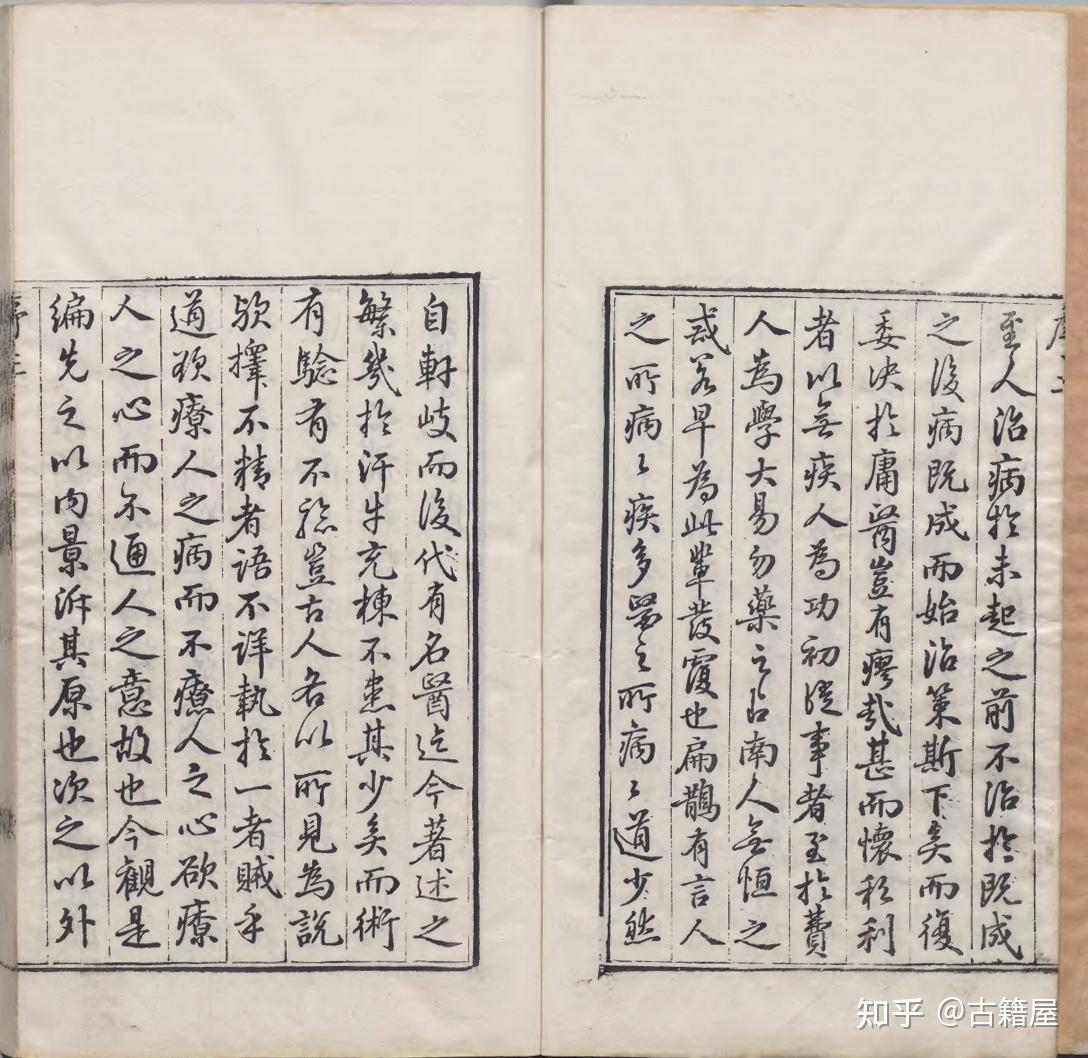 至人治病於未起之前不治於既成
之後病既成而始治策斯下矣而復
委決於庸醫豈有瘳哉甚而懷私利
者以無疾人為功初從事者至於費
人為學大易勿藥之占南人無恒之
戒蓋早為此輩發覆也扁鵲有言人
之所病々疾多醫之所病々道少然
自軒岐而後代有名醫迄今著述之
繁幾於汗牛充棟不患其少矣而術
有驗有不驗豈古人各以所見為說
歟擇不精者語不詳執於一者賊乎
道欲療人之病而不療人之心欲療
人之心而不通人之意故也今觀是
編先之以內景泝其原也次之以外
知乎 @古籍屋